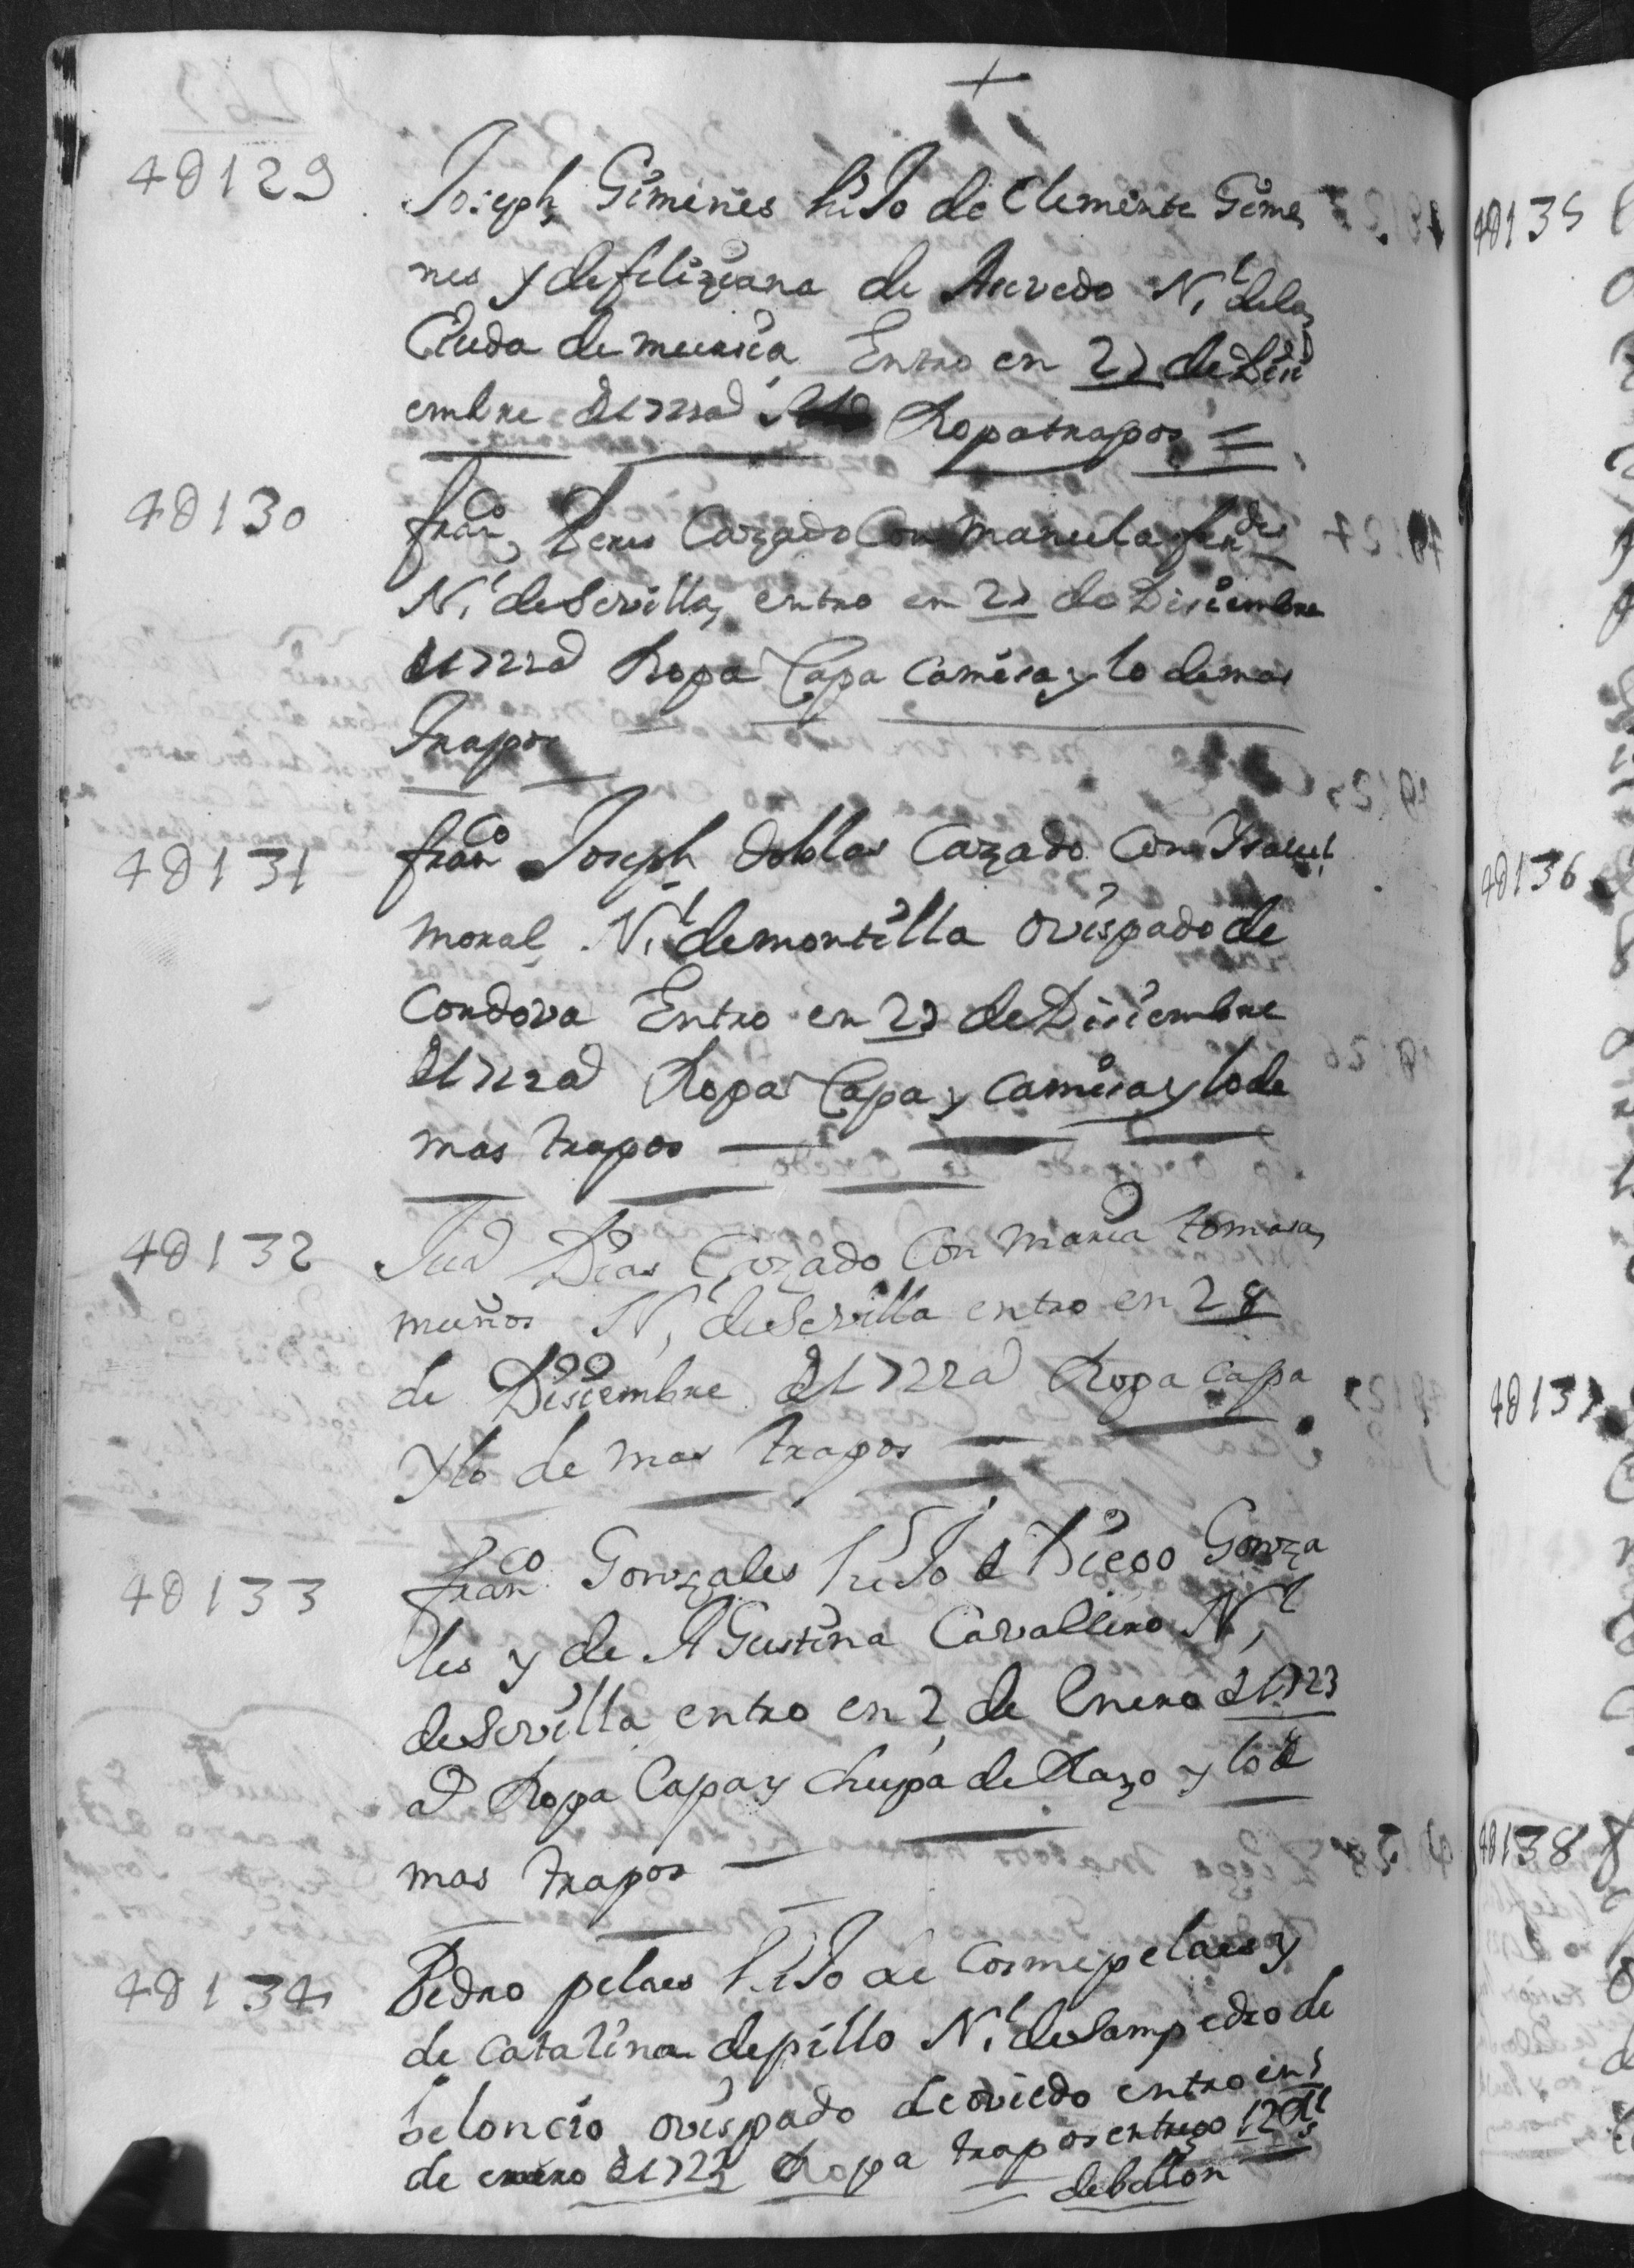 +
4D129 Joseph Gimenes hiJo de Clemente Gime
nes y de feliziana de Asevedo N.l de la
Ciuda de mursia Entro en 27 de Disi
embre d 1722 ad Ropa trapos =
4D130 franco Peres Cazado Con Manuela ferndes
N.l de Sevilla, entro en 27 de Disiembre
d 1722 ad Ropa Capa Camisa y lo demas
Trapos
4D131 franco Joseph doblas Cazado Con Ysavel
moral N.l de montilla ovispado de
Cordova Entro en 27 de Disiembre
d 1722 ad Ropa Capa y Camisa y lo de
mas trapos
4D132 Jua Dias Cazado Con maria tomasa
muños N.l de Sevilla entro en 28
de Disiembre d 1722 ad Ropa capa
y lo de mas trapos
4D133 franco Gonzales hiJo d Diego Gonza
les y de AGustina Cavallero N.l
de Sevilla entro en 2 de Enero d 1723
ad Ropa Capa y chupa de Razo y lo d
mas trapos
4D134 Pedro pelaes hiJo de Cosme pelaes y
de Catalina depillo N.l de Sampedro de
beloncio ovispado de oviedo entro en 5
de enero d 1723 Ropa trapos entrego 12 Rs
de bellon
4D135
4D136
4D137
4D138